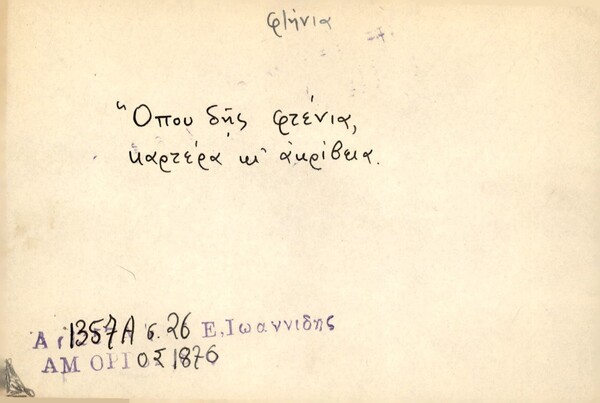 φτήνια
Ὅπου δῇς φτένια,
καρτέρα κι' ἀκρίβεια.
Α 1357Α σ. 26 Ε. Ιωαννιδης
ΑΜΟΡΓΟΣ 1876